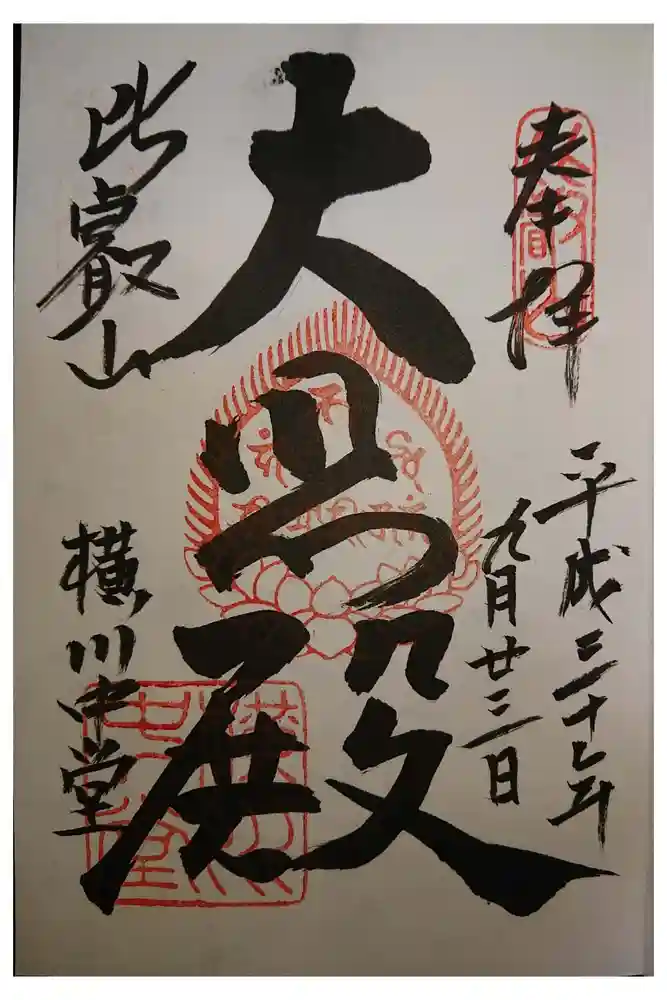 奉拝
平成三十年
九月廿三日
大悲殿
比叡山
横川中堂